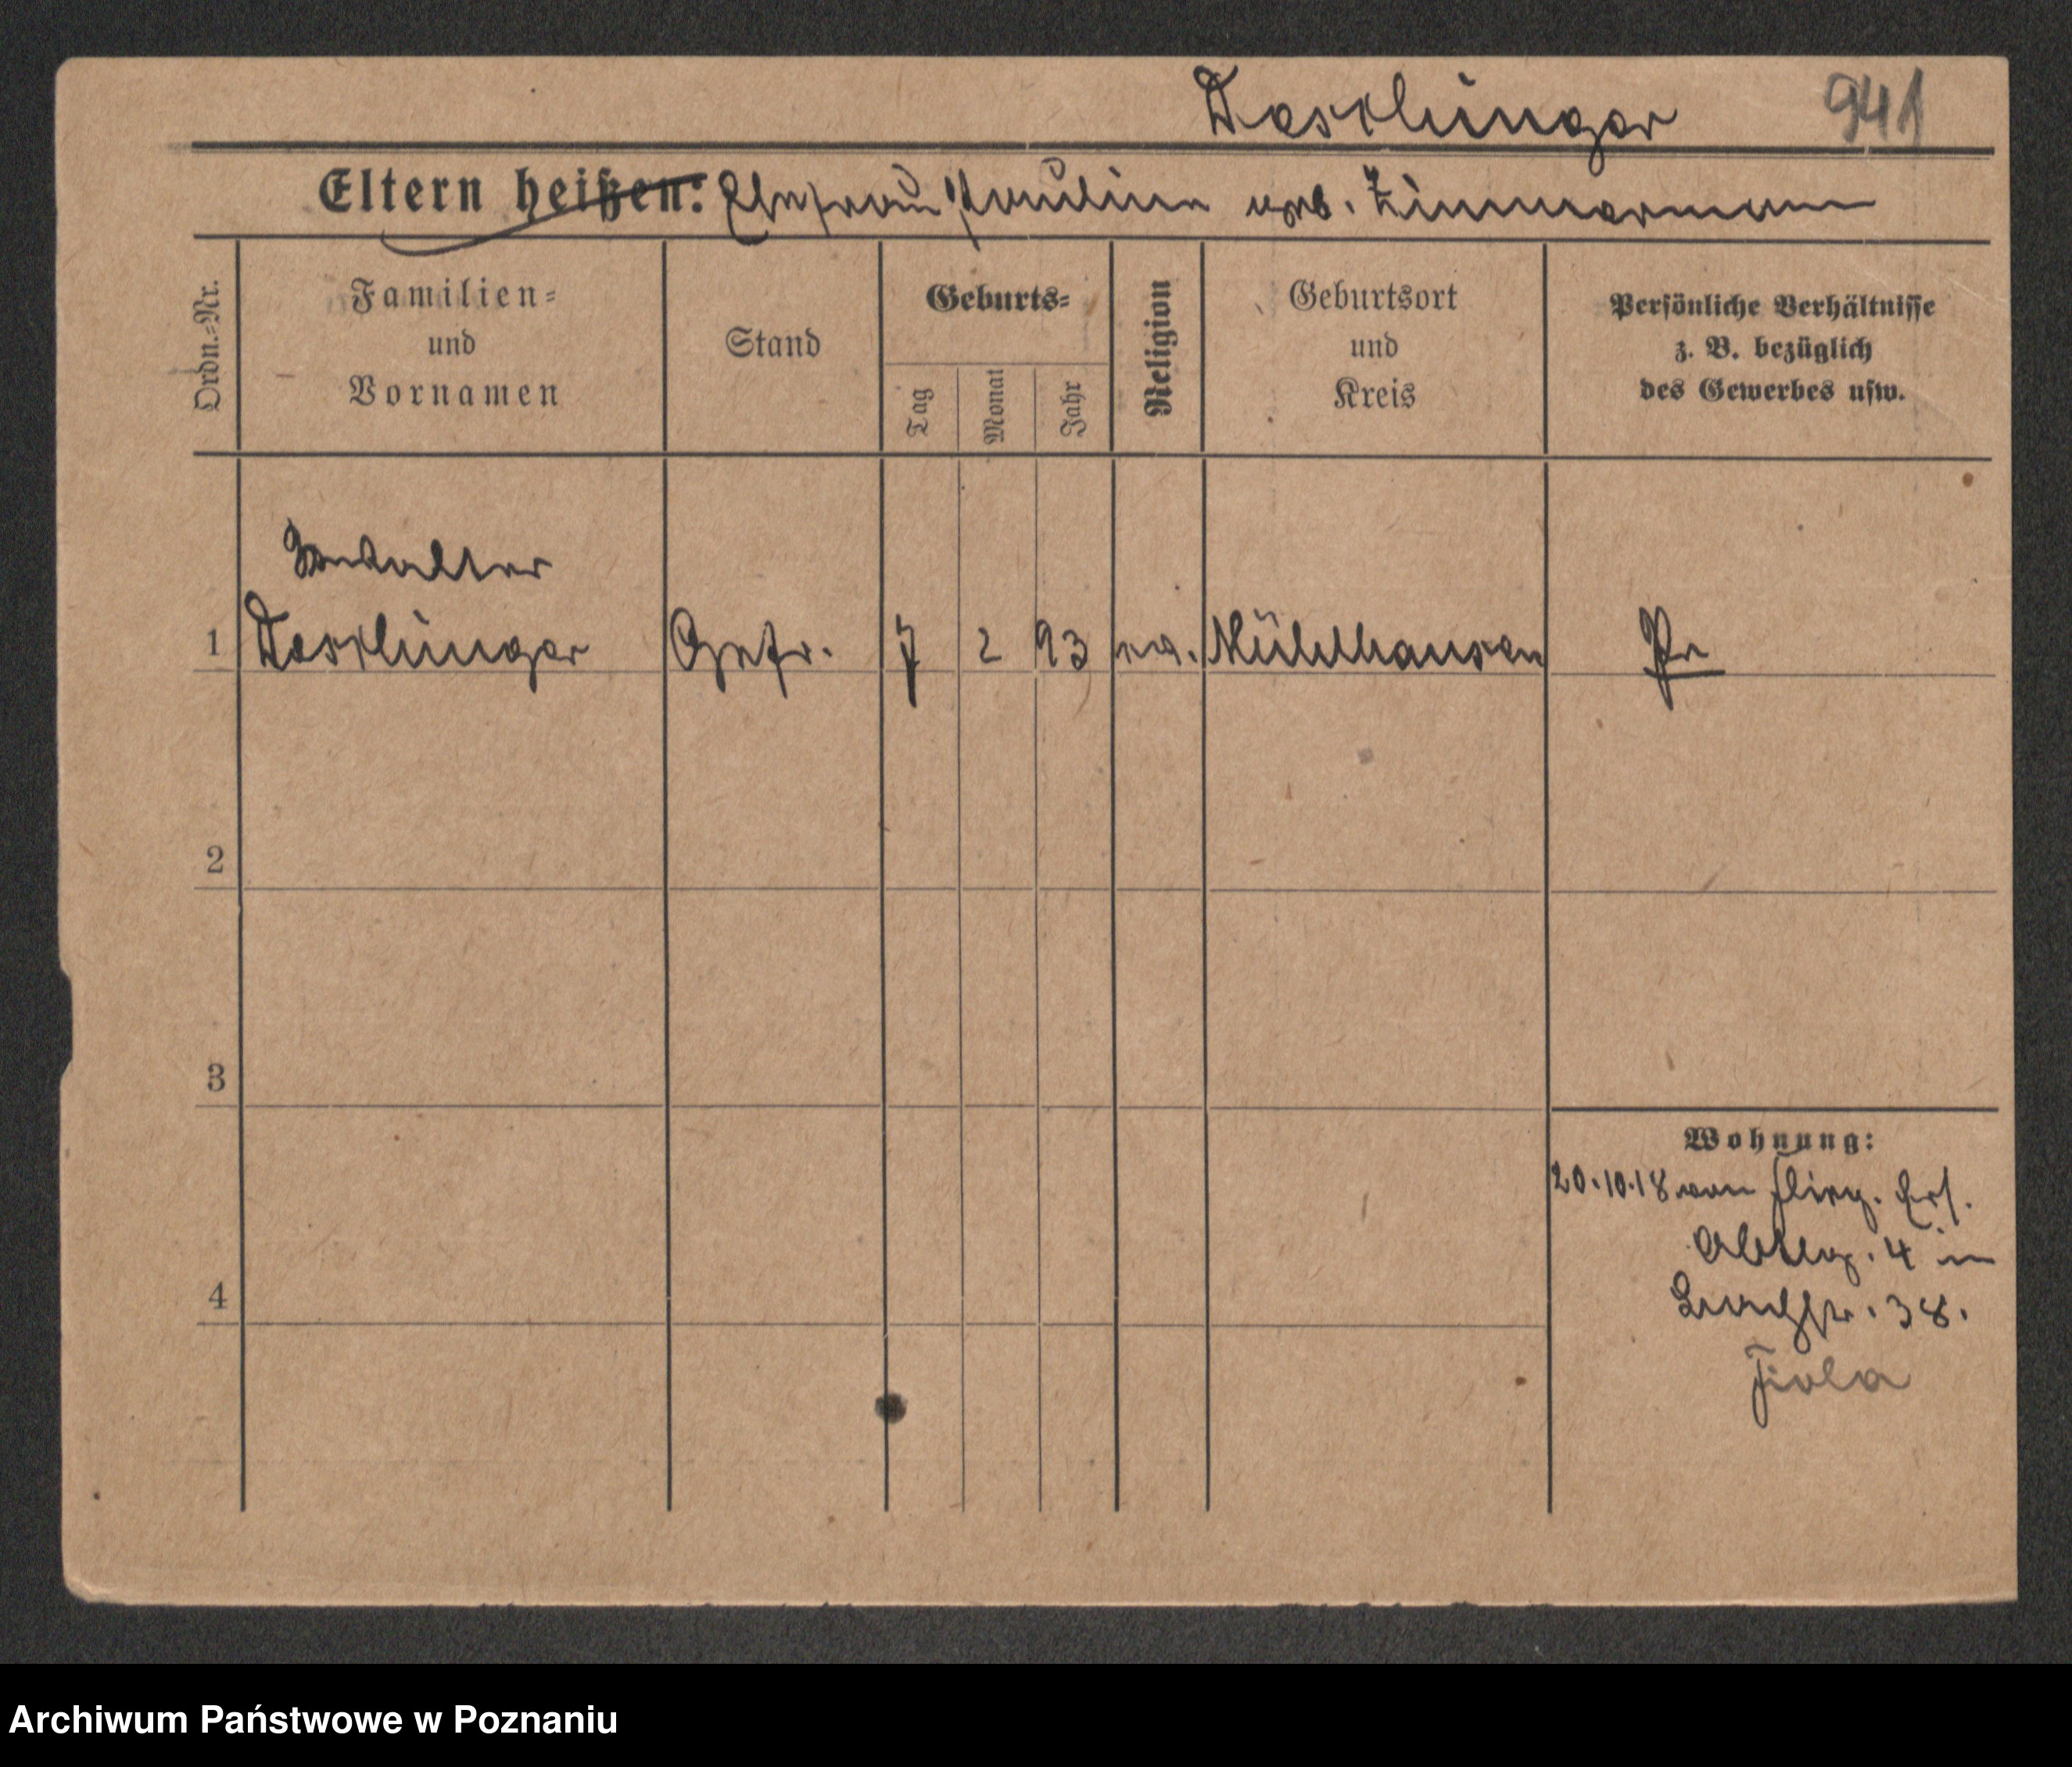 941
Eltern heißen: Ehefrau Pauline geb. Zimmermann
Ordn.=Nr.
Familien=
und
Vornamen
Stand
Geburts=
Tag
Monat
Jahr
Religion
Geburtsort
und
Kreis
Persönliche Verhältnisse
z. B. bezüglich
des Gewerbes usw.
Walter
1 Gefr. 7 2 93 ev. Mühlhausen Pr
2
3
4
Wohnung:
20.10.18 von Flieg. Ers.
Abtlg. 4 in
38.
Fiola
Archiwum Państwowe w Poznaniu